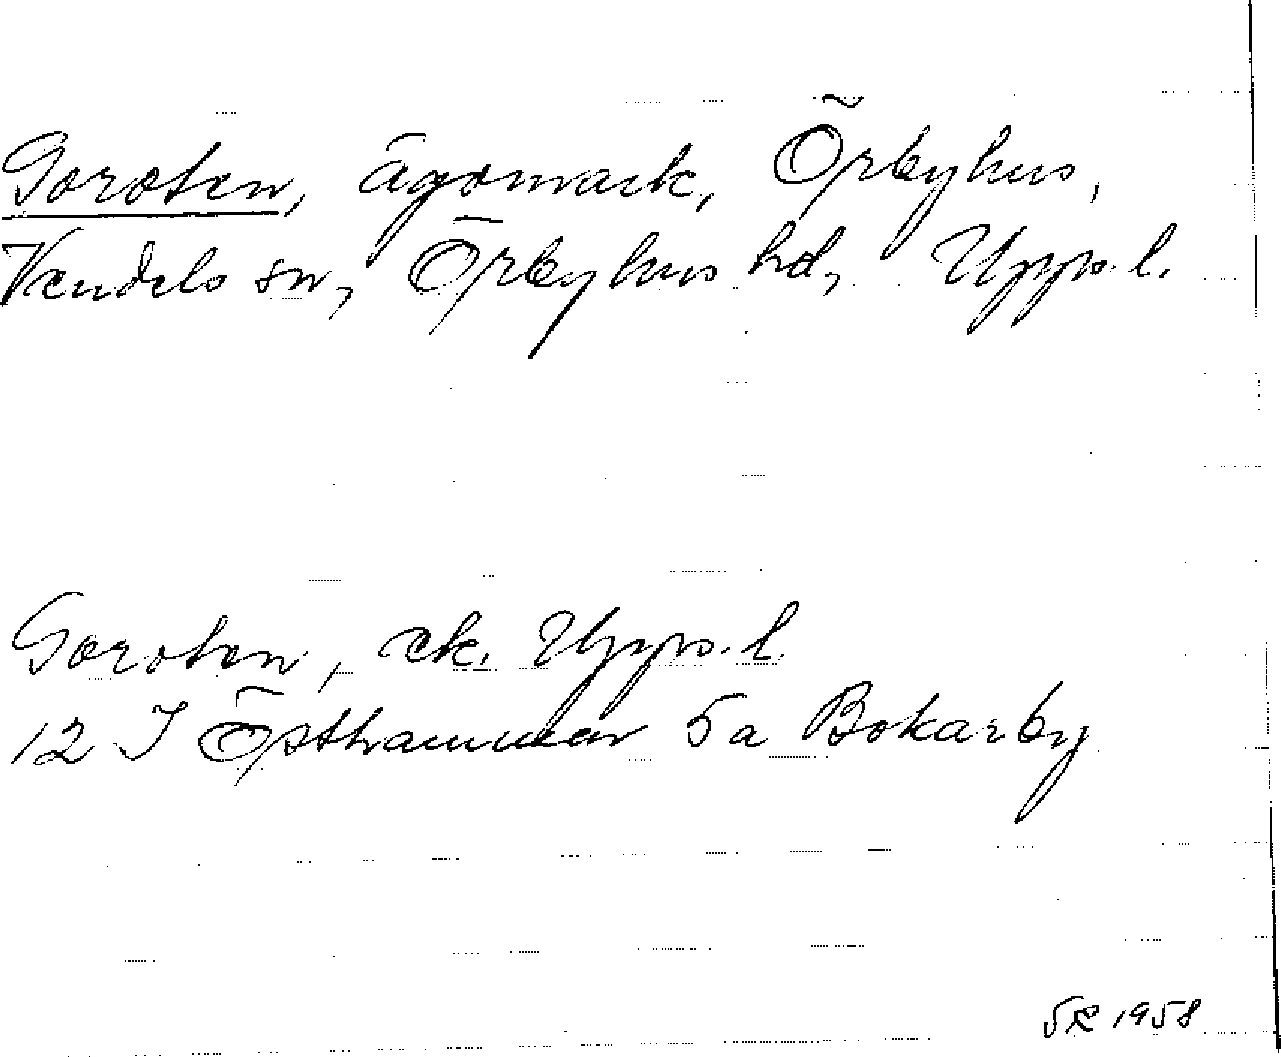 Goroten, ägomark, Örbyhus,
Vendels sn, Örbyhus hd, Upps. l.
Goroten, ek. Upps. l.
12 I Östhammar 5a Bokarby
SR 1958